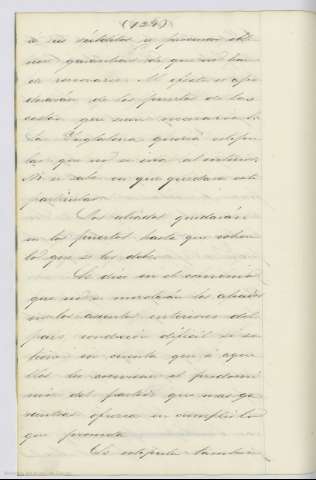 (124)
a sus súbditos y procurar obte-
ner garantías de que no han
de renovarse. Al efecto se apo-
derarán de los puertos de la
costa que sean necesarios.
La Inglaterra quería estipu-
lar que no se iría al interior.
No se sabe en que quedará este
particular.
Los aliados quedarán
en los puertos hasta que cobren
lo que se les debe.
Se dice en el convenio
que no se mezclarán los aliados
en los asuntos interiores del
país, condición difícil si se
tiene en cuenta que a aque-
llos les conviene el predomi-
nio del partido que mas ga-
rantías ofrezca en cumplir lo
que prometa.
Se estipula también